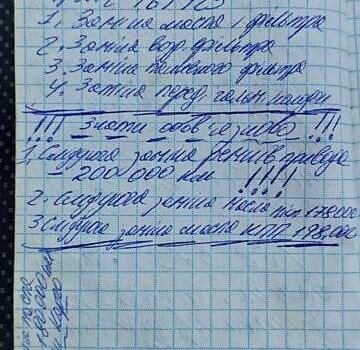 1. Заміна масла і фільтра
2. Заміна пов. фільтра
3. Заміна паливного фільтра
4. Заміна перед. гальм. колодки
!!! знати обов'язково !!!
1. Слідуюча заміна ременів привода
- 200 000 км !!!!
2. Слідуюча заміна масла 178000
3. Слідуюча заміна масла КПП 198,000
180000